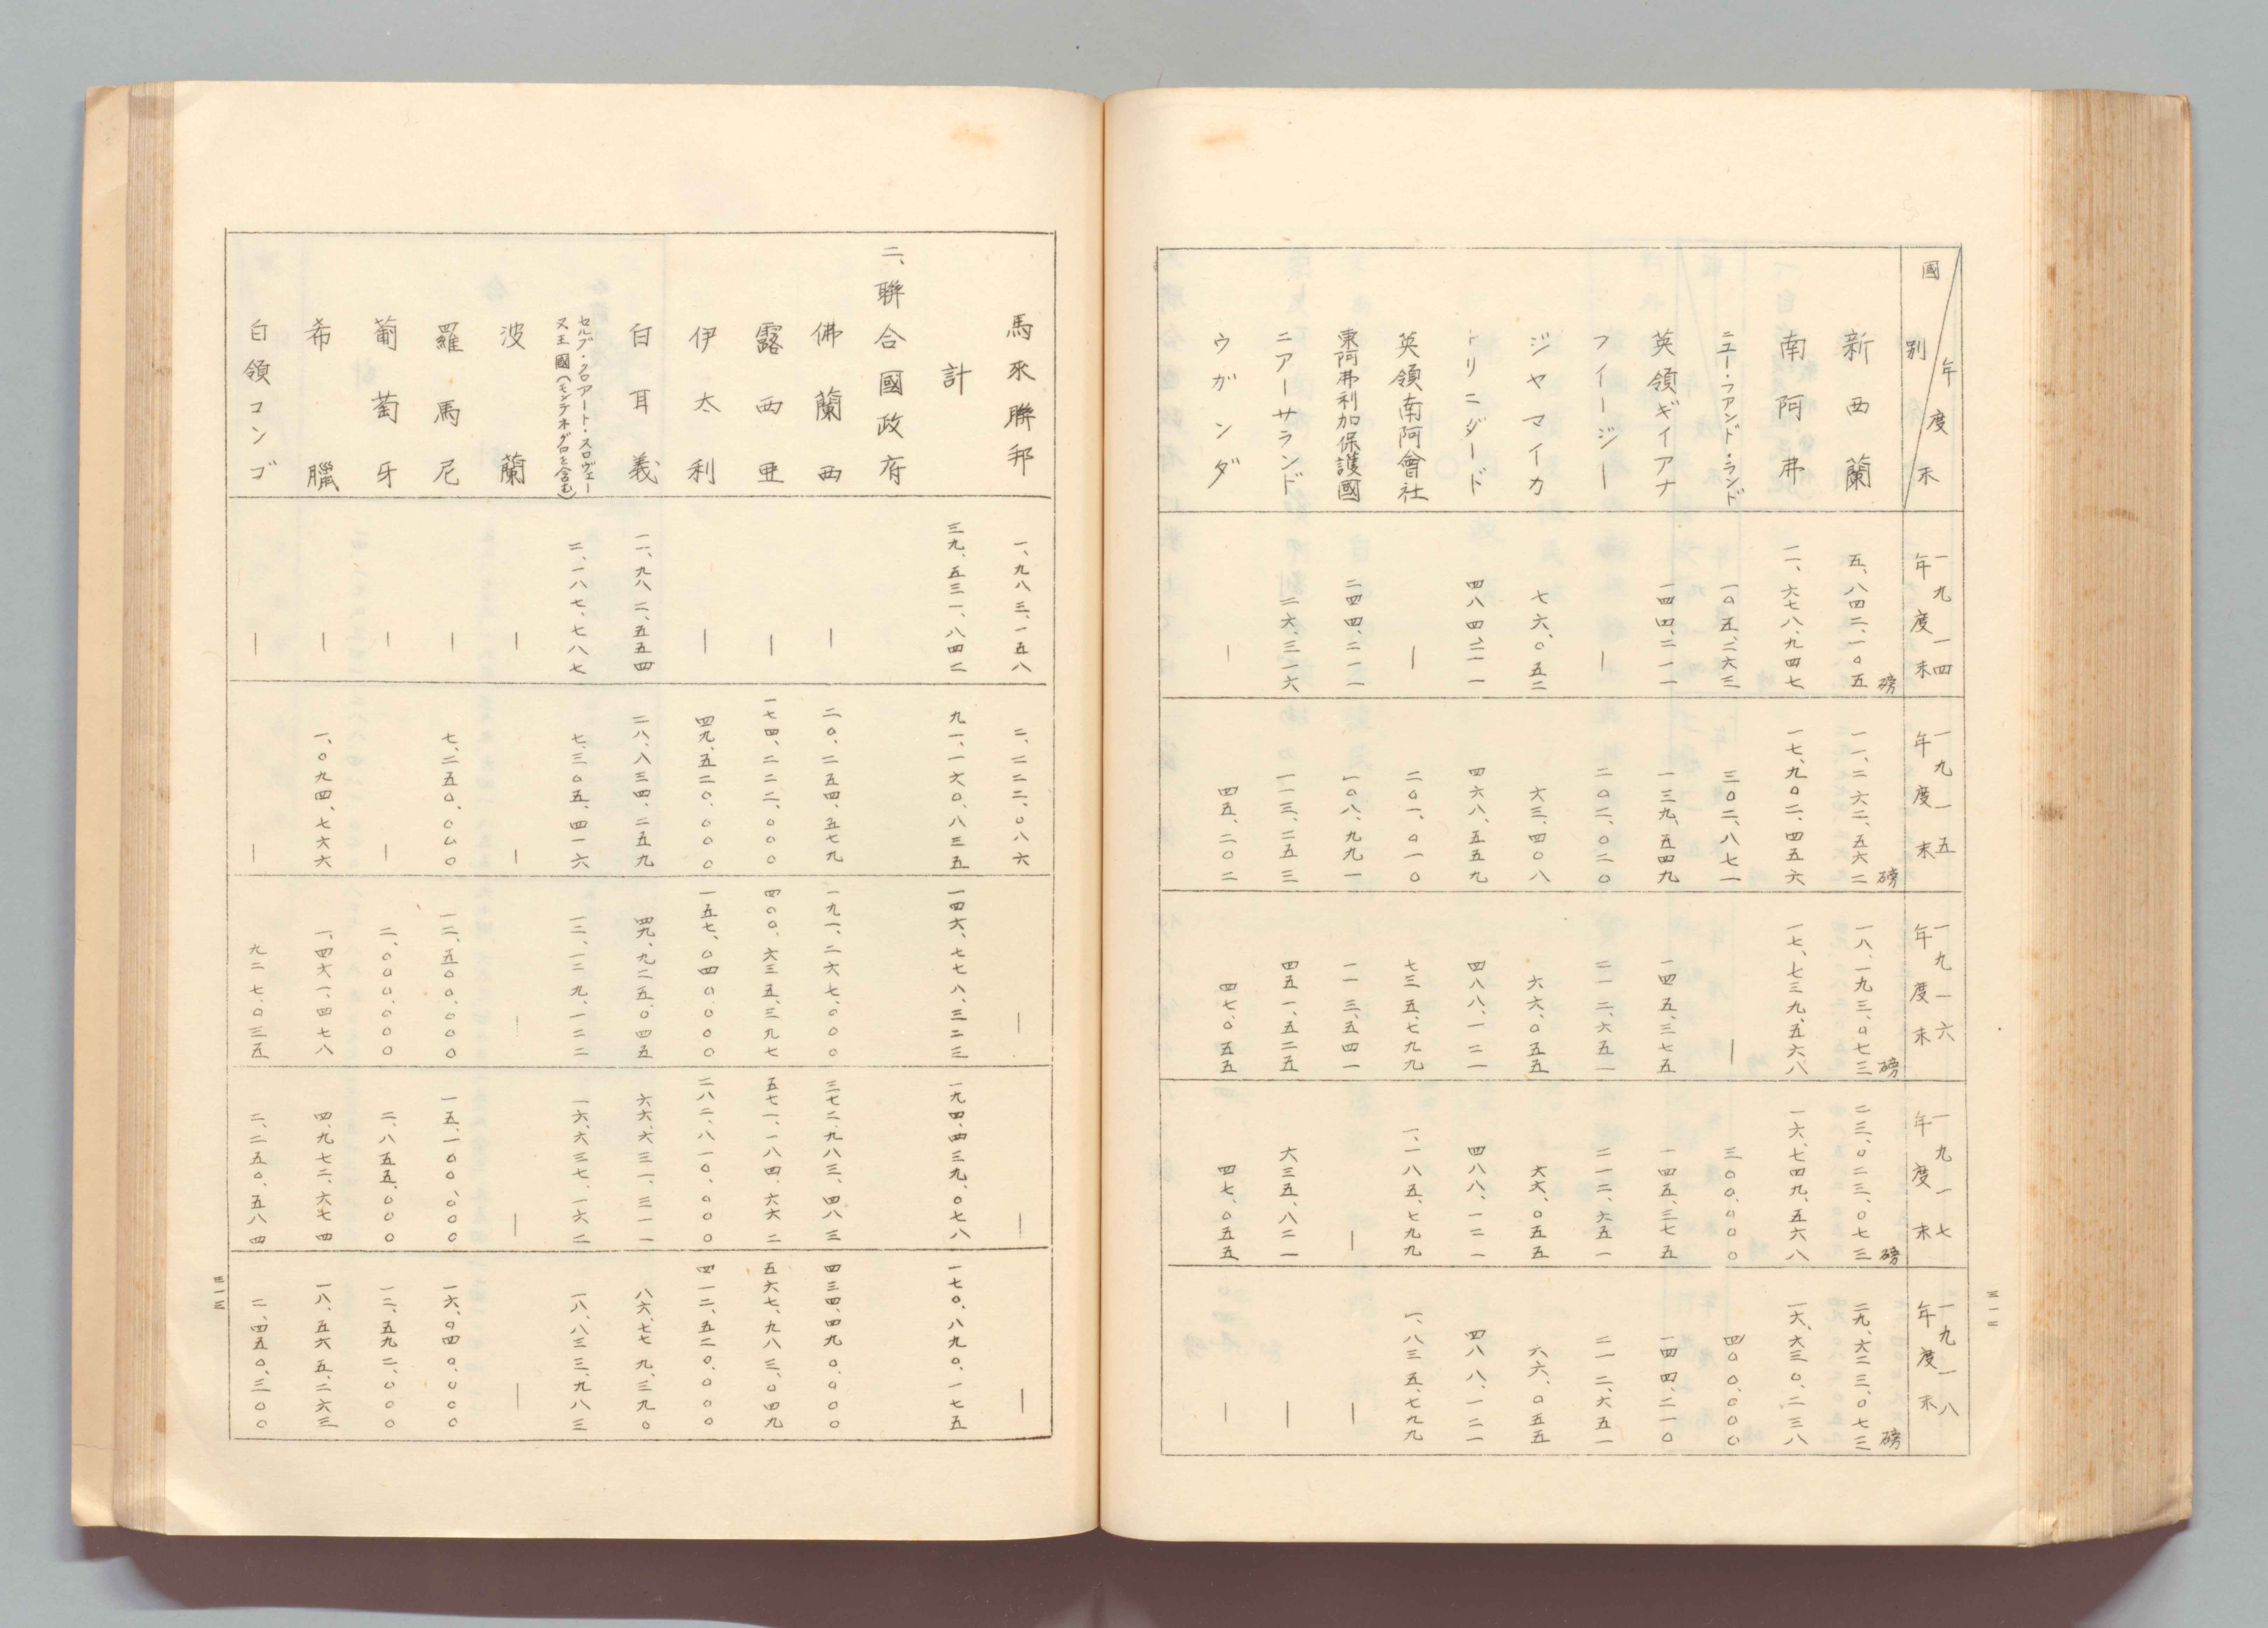 國別 年度末
一九一四年度末
一九一五年度末
一九一六年度末
一九一七年度末
一九一八年度末
新西蘭 五、八四二、一〇五磅 一一、二六二、五六二磅 一八、一九三、〇七三磅 二三、〇二三、〇七三磅 二九、六二三、〇七三磅
南阿弗 一一、六七八、九四七 一七、九〇二、四五六 一七、七三九、五六八 一六、七四九、五六八 一六、六三〇、二三八
ニユー・フアンド・ランド 一〇五、二六三 三〇二、八七一 ― 三〇〇、〇〇〇 四〇〇、〇〇〇
英領ギイアナ 一四四、二一一 一三九、五四九 一四五、三七五 一四五、三七五 一四四、二一〇
フイージー ― 二〇二、〇二〇 二一二、六五一 二一二、六五一 二一二、六五一
ジヤマイカ 七六、〇五二 六三、四〇八 六六、〇五五 六六、〇五五 六六、〇五五
トリニダード 四八四、二一一 四六八、五五九 四八八、一二一 四八八、一二一 四八八、一二一
英領南阿會社 ― 二〇一、〇一〇 七三五、七九九 一、一八五、七九九 一、八三五、七九九
東阿弗利加保護國 二四四、二一一 一〇八、九九一 一一三、五四一 ― ―
ニアーサランド 二六、三一六 一一三、二五三 四五一、五二五 六三五、八二一 ―
ウガンダ ― 四五、二〇二 四七、〇五五 四七、〇五五 ―
三一二
馬來聯邦 一、九八三、一五八 二、二二二、〇八六 ― ― ―
計 三九、五三一、八四二 九一、一六〇、八三五 一四六、七七八、三二三 一九四、四三九、〇七八 一七〇、八九〇、一七五
二、聯合國政府
佛蘭西 ― 二〇、二五四、五七九 一九一、二六七、〇〇〇 三七二、九八三、四八三 四三四、四九〇、〇〇〇
露西亜 ― 一七四、二二二、〇〇〇 四〇〇、六三五、三九七 五七一、一八四、六六二 五六七、九八三、〇四九
伊太利 ― 四九、五二〇、〇〇〇 一五七、〇四〇、〇〇〇 二八二、八一〇、〇〇〇 四一二、五二〇、〇〇〇
白耳義 一一、九八二、五五四 二八、八三四、二五九 四九、九二五、〇四五 六六、六三一、三一一 八六、七七九、三九〇
セルブ・クロアート・スロヴェー
ヌ王國(モンテネグロを含む) 二、一八七、七八七 七、三〇五、四一六 一二、一二九、一二二 一六、六三七、一六二 一八、八三三、九八三
波蘭 ― ― ― ― ―
羅馬尼 ― 七、二五〇、〇〇〇 一二、五〇〇、〇〇〇 一五、一〇〇、〇〇〇 一六、〇四〇、〇〇〇
葡萄牙 ― ― 二、〇〇〇、〇〇〇 二、八五五、〇〇〇 一二、五九二、〇〇〇
希臘 ― 一、〇九四、七六六 一、四六一、四七八 四、九七二、六七四 一八、五六五、二六三
白領コンゴ ― ― 九二七、〇三五 二、二五〇、五八四 二、四五〇、三〇〇
三一三